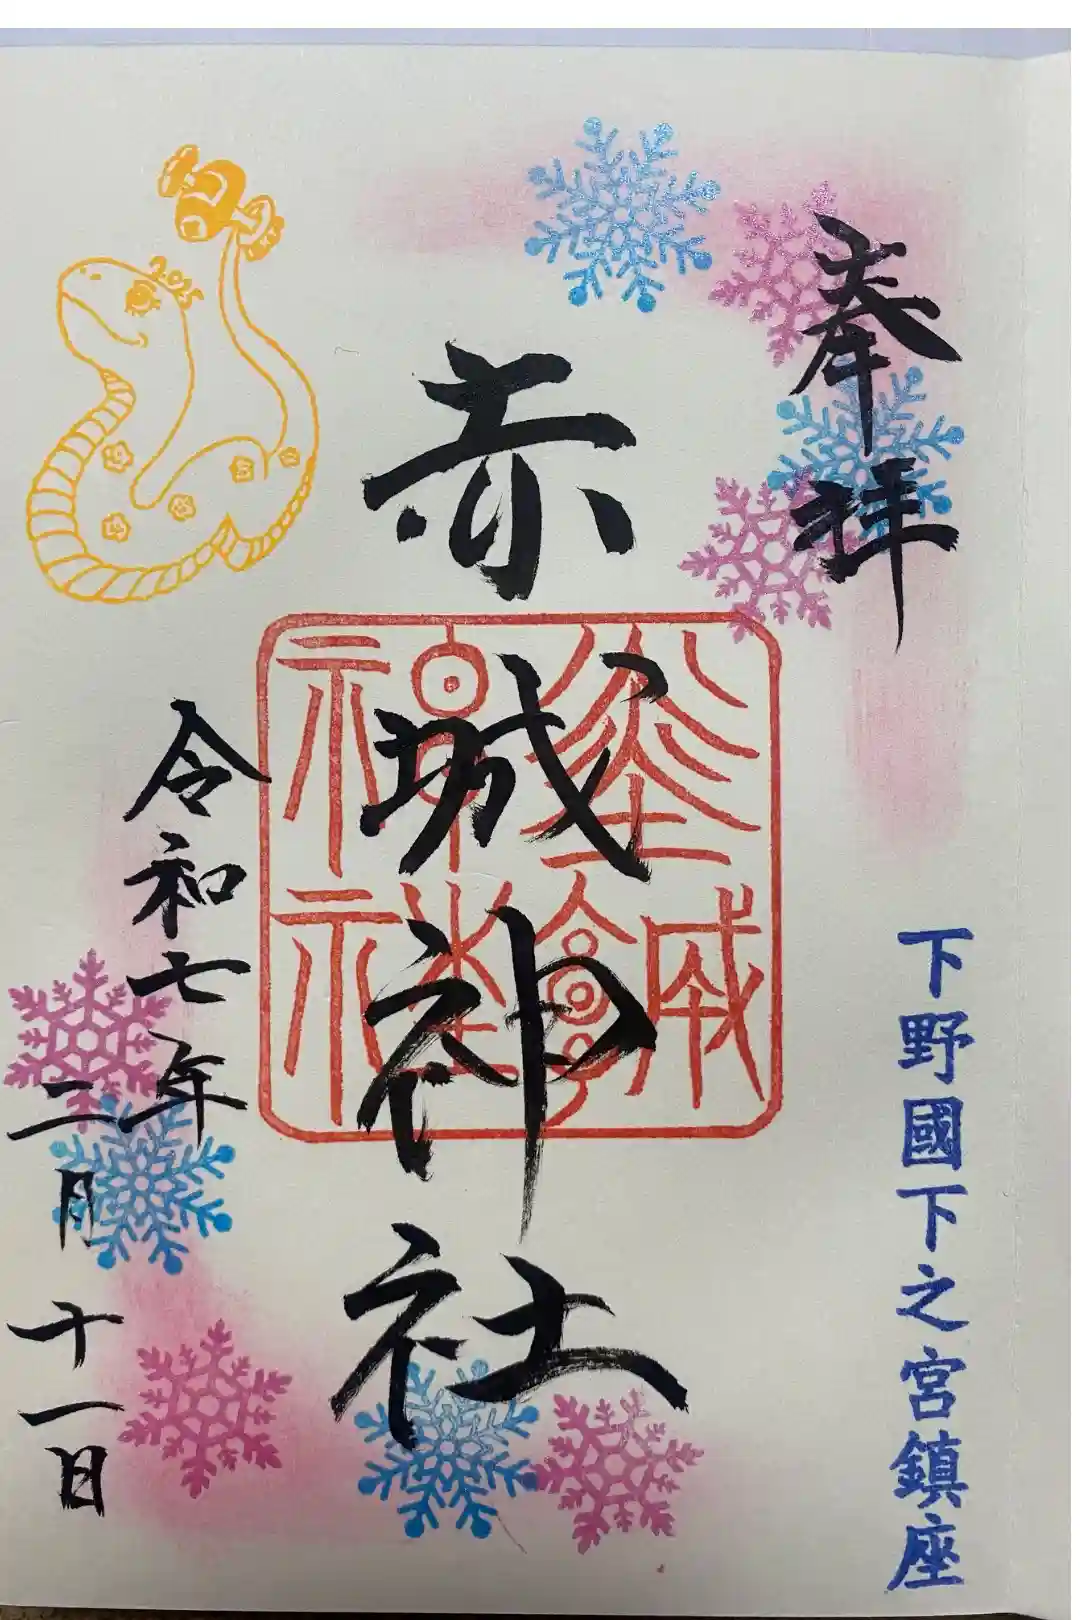 奉拝
下野國下之宮鎮座
赤城神社
令和七年
二月十一日
2025